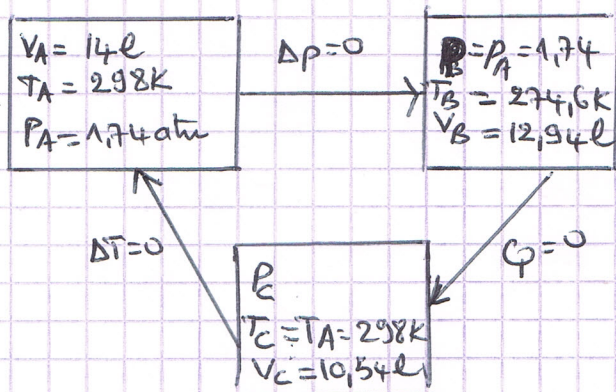 VA = 14 l
TA = 298K
PA = 1,74 atm
Δp=0
PB = PA = 1,74
TB = 274,6K
VB = 12,94 l
Q=0
PC
TC = TA = 298K
VC = 10,54 l
ΔT=0